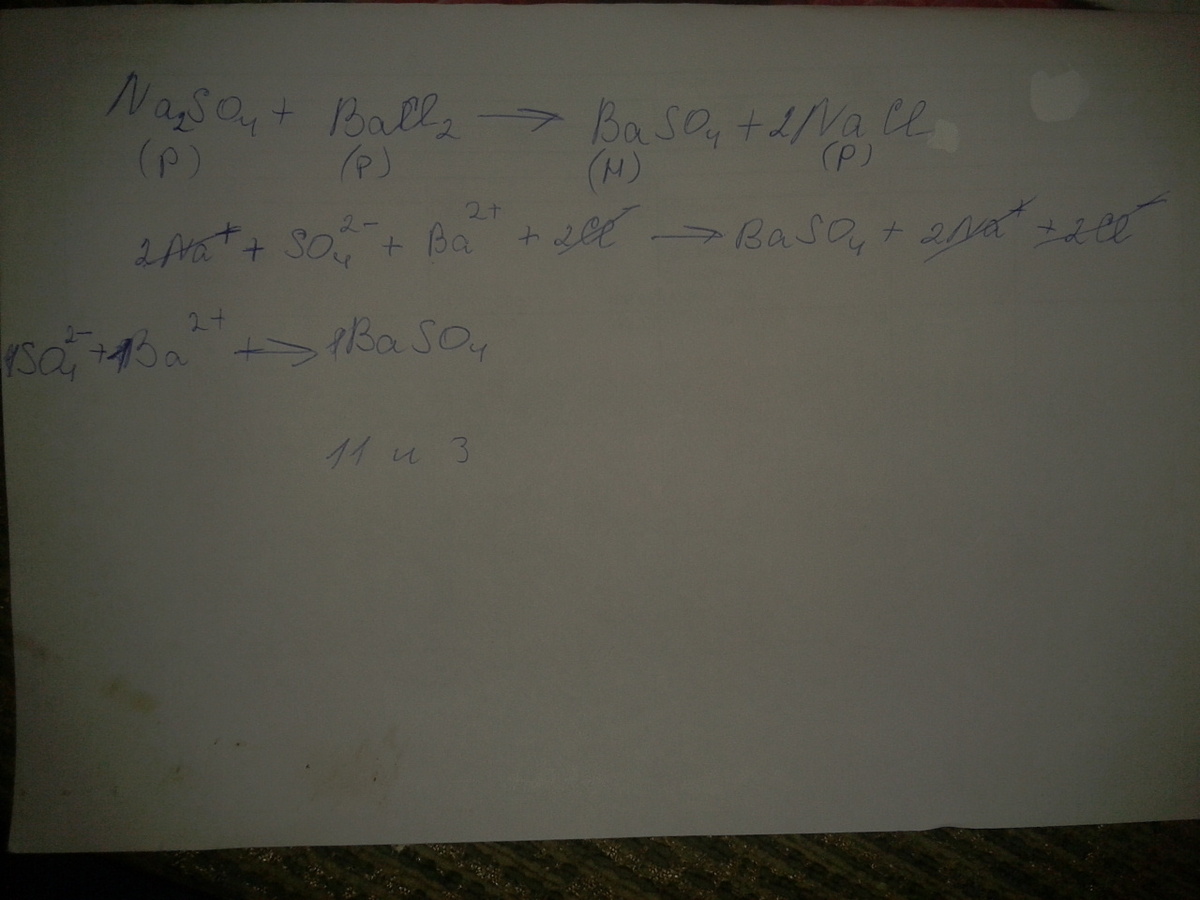 Na₂SO₄ + BaCl₂ → BaSO₄ + 2NaCl
(Р) (Р) (Н) (Р)
2Na⁺ + SO₄²⁻ + Ba²⁺ + 2Cl⁻ → BaSO₄ + 2Na⁺ + 2Cl⁻
1SO₄²⁻ + 1Ba²⁺ → 1BaSO₄
11 и 3